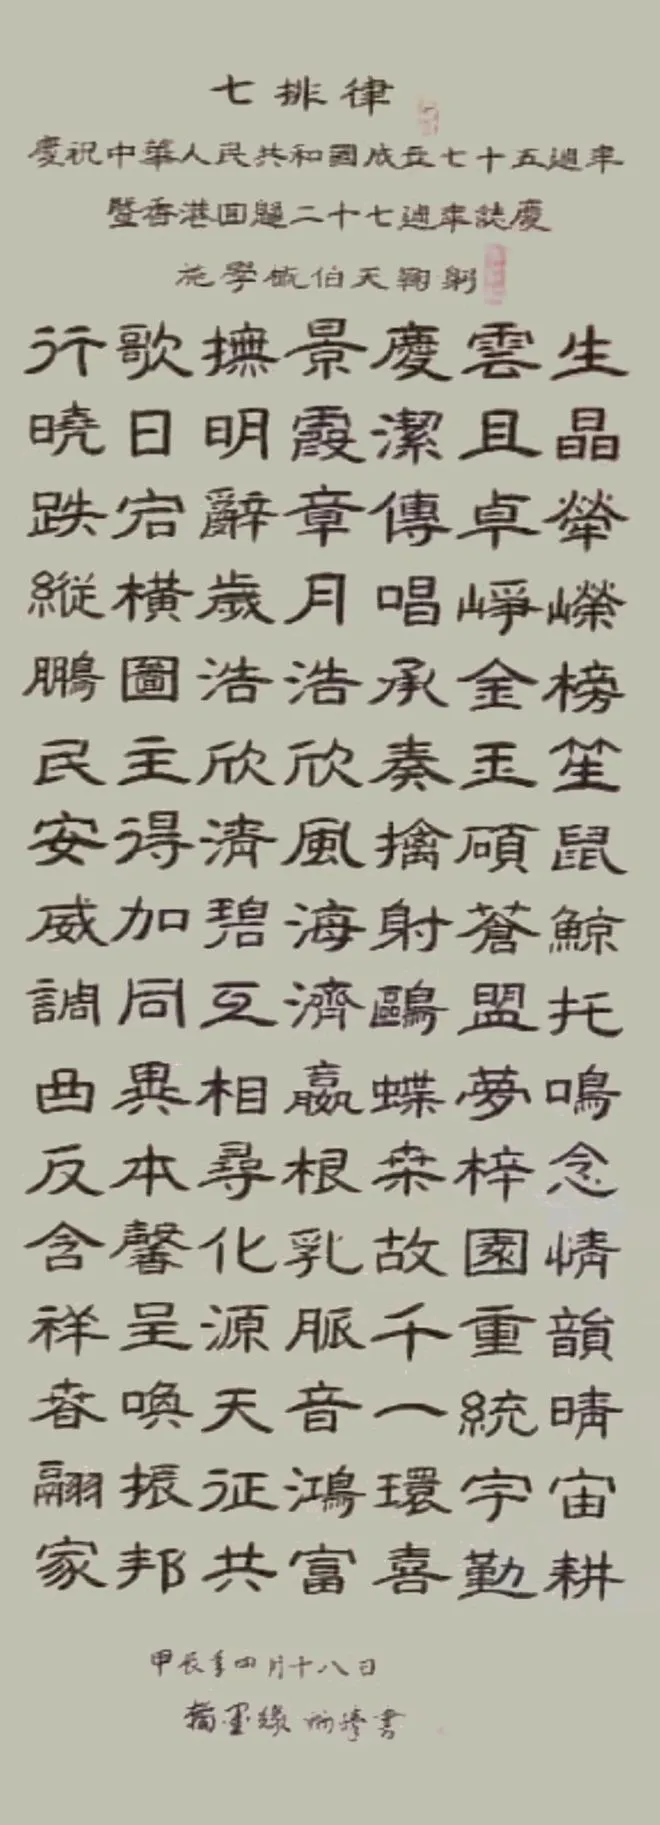 七排律
慶祝中華人民共和國成立七十五週年
暨香港回歸二十七週年誌慶
施學概伯天鞠躬
行歌撫景慶雲生
曉日明霞潔且晶
跌宕辭章傳卓犖
縱橫歲月唱崢嶸
鵬圖浩浩承金榜
民主欣欣奏玉笙
安得清風擒碩鼠
威加碧海射蒼鯨
調同互濟鷗盟托
曲異相贏蝶夢鳴
反本尋根桑梓念
含馨化乳故園情
祥呈源脈千重韻
春喚天音一統晴
翮振征鴻環宇宙
家邦共富喜勤耕
甲辰年四月十八日
翰墨緣書